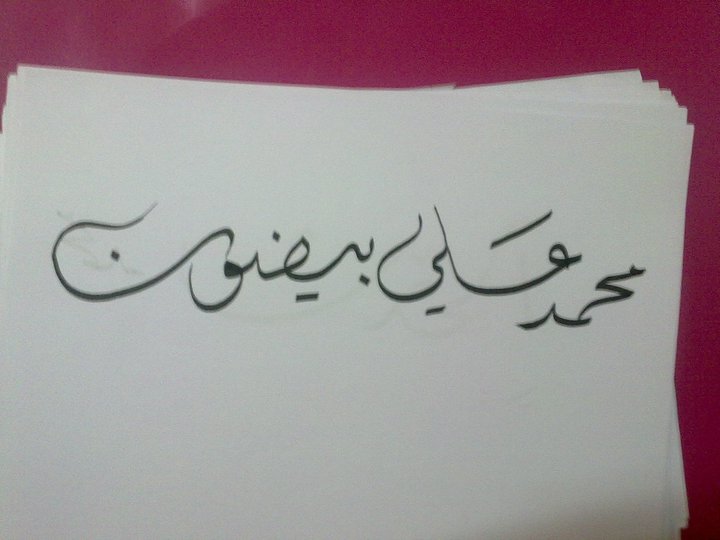 محمد علي بيضون